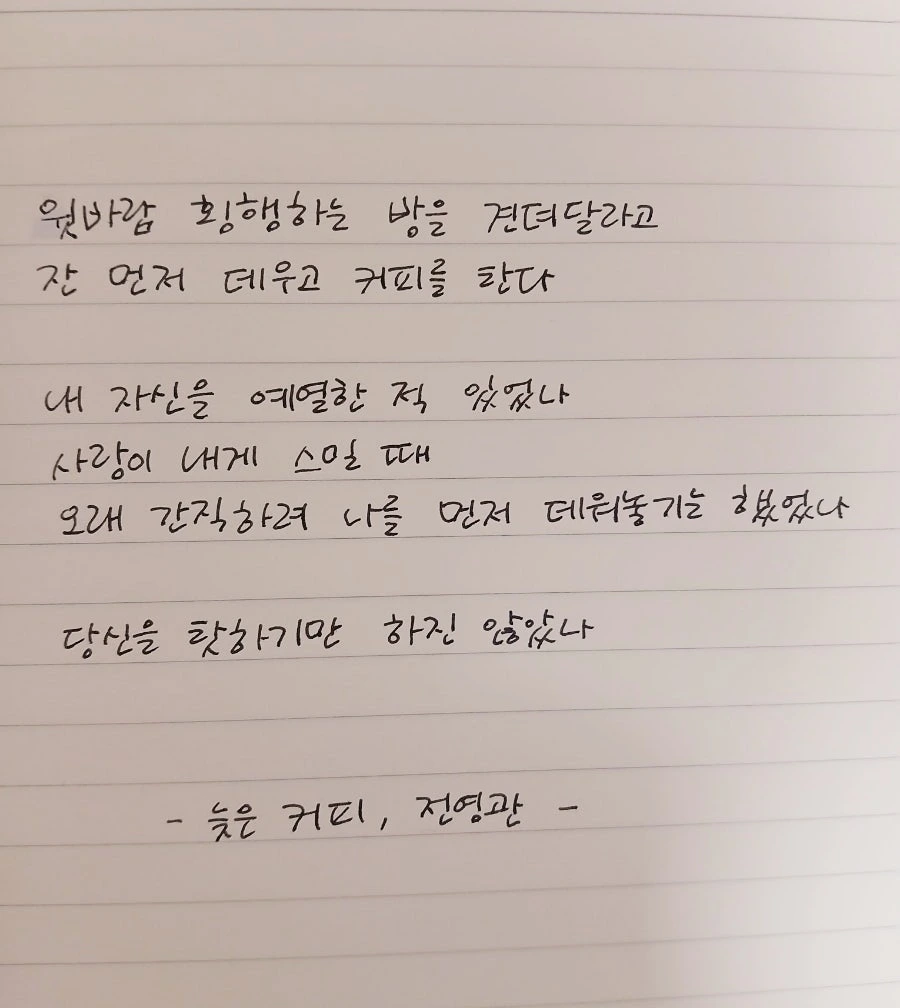 웟바람 횡행하는 방을 견뎌달라고
잔 먼저 데우고 커피를 탄다
내 자신을 예열한 적 있었나
사랑이 내게 스밀 때
오래 간직하려 나를 먼저 데워놓기는 했었나
당신을 탓하기만 하진 않았나
- 늦은 커피, 전영관 -